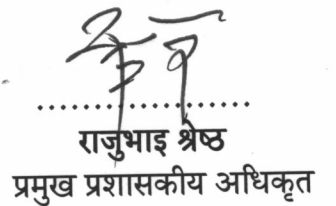 ....................
राजुभाइ श्रेष्ठ
प्रमुख प्रशासकीय अधिकृत